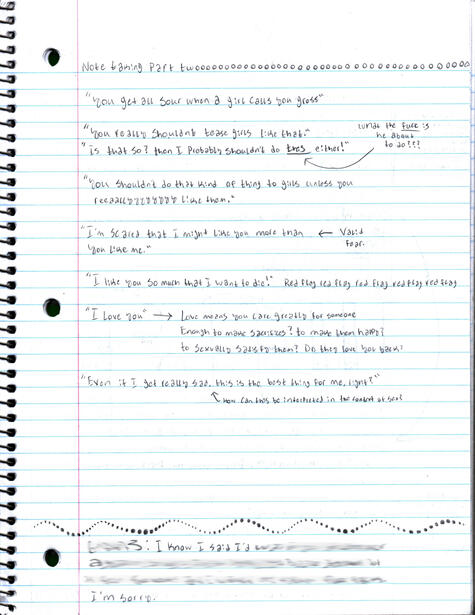 Note taking Part twooooooooooooooooooooooooooooooo
"You get all sour when a girl calls you gross"
"You really shouldn't tease girls like that."
What the fuck is
he about
to do???
"Is that so? then I Probably shouldn't do this either!"
"You shouldn't do that kind of thing to girls unless you
reeaallyyyyyyyy like them."
"I'm scared that I might like you more than ← Valid
you like me." fear.
"I like you so much that I want to die!" Red flag red flag red flag red flag red flag
"I love you" → Love means you care greatly for someone
Enough to make sacrifices? to make them happy?
to sexually satisfy them? Do they love you back?
"Even if I get really sad, this is the best thing for me, right?"
How can this be interpreted in the context of sex?
3: I know I said I'd
I'm sorry.